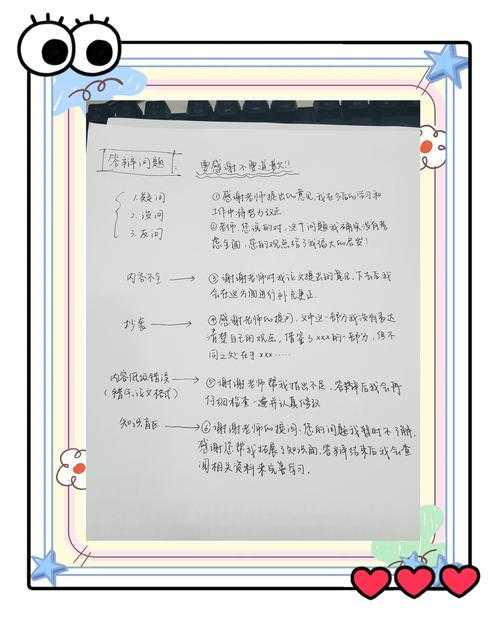 答辩问题 要感谢不要道歉!!
1.疑问
2.设问
3.反问
①感谢老师提出的意见,我在今后的学习和
工作中将努力改正
②老师,您说的对,这个问题我确实没有考
虑全面,您的观点给了我很大的启发!
内容不全 → ③谢谢老师对我论文提出的意见,下去后我
会在这方面进行补充更正.
抄袭 → ④感谢老师的提问,文中这一部分我没有表达
清楚自己的观点,借鉴了xxx的一部分,但不
同之处在于xxx……
内容低级错误 → ⑤谢谢老师帮我指出不足,答辩后我会再
(错字,论文格式) 仔细检查一遍并认真修改
知识盲区 → ⑥谢谢老师的提问,您的问题我暂时不了解,
感谢您帮我拓展了知识面,答辩结束后我会查
阅相关资料来完善学习.